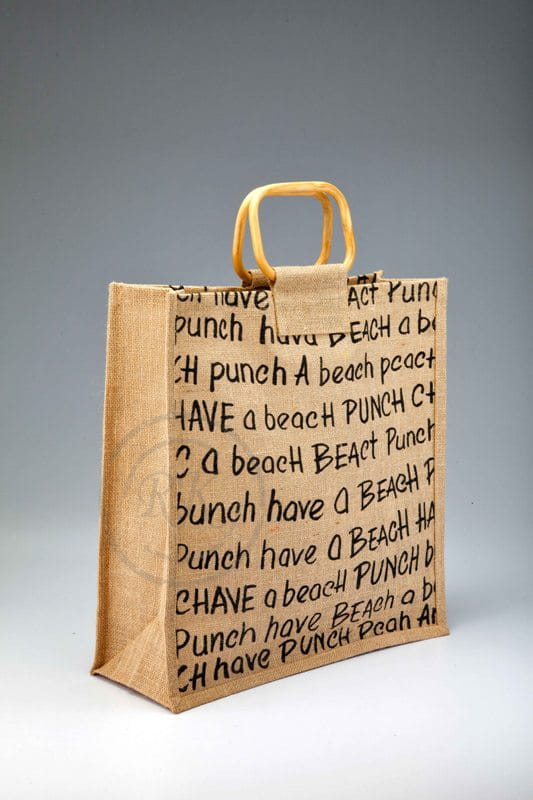 CH have ACT Punc
punch havd BEACH a be
CH punch A beach pcact
HAVE a beacH PUNCH CH
C a beacH BEACt Punch
punch have a BEACH P
Punch have a BEACH HA
CHAVE a beacH PUNCH b
Punch have BEACH a b
CH have PUNCH Pcah An